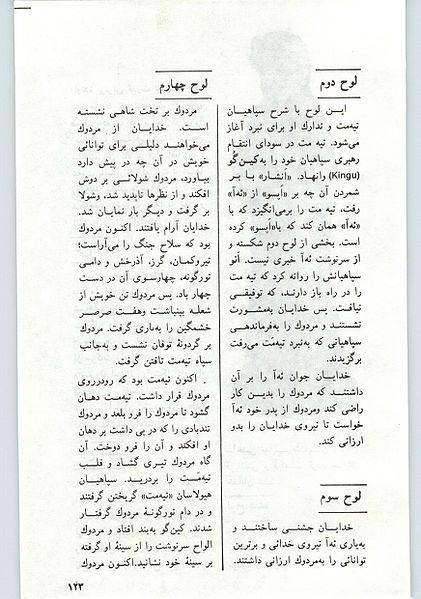 لوح دوم
این لوح با شرح سپاهیان
تیه‌مت و تدارك او برای نبرد آغاز
می‌شود. تیه مت در سودای انتقام
رهبری سپاهیان خود را به‌کین‌گو
(Kingu) وانهاد. «انشار» با بر
شمردن آن چه بر «آپسو» از «ئه‌آ»
رفت، تیه مت را برمی‌انگیزد که با
«ئه‌آ» همان کند که با«آپسو» کرده
است. بخشی از لوح دوم شکسته و
از سرنوشت ئه‌آ خبری نیست. آنو
سپاهیانش را روانه کرد که تیه مت
را در راه باز دارند، که توفیقی
نیافت. پس خدایان به‌مشورت
نشستند و مردوك را به‌فرماندهی
سپاهیانی که‌به‌نبرد تیه‌مت می‌رفت
برگزیدند.
خدایان جوان ئه‌آ را بر آن
داشتند که مردوك را بدین کار
راضی کند ومردوك از پدر خود ئه‌آ
خواست تا نیروی خدایان را بدو
ارزانی کند.
لوح سوم
خدایان جشنی ساختند و
به‌یاری ئه‌آ نیروی خدائی و برترین
توانائی را به‌مردوك ارزانی داشتند.
لوح چهارم
مردوك بر تخت شاهی نشسته
است. خدایان از مردوك
می‌خواهند دلیلی برای توانائی
خویش در آن چه در پیش دارد
بیاورد، مردوك شولائی بر دوش
افکند و از نظرها ناپدید شد، وشولا
بر گرفت و دیگر بار نمایان شد.
خدایان آرام یافتند. اکنون مردوك
بود که سلاح جنگ را می‌آراست؛
تیروکمان، گرز، آذرخش و دامی
تورگونه، چهارسوی آن در دست
چهار باد. پس مردوك تن خویش از
شعله بینباشت وهفت صرصر
خشمگین را به‌یاری گرفت. مردوك
بر گردونهٔ توفان نشست و به‌جانب
سپاه تیه‌مت تافتن گرفت.
اکنون تیه‌مت بود که رودرروی
مردوك قرار داشت. تیه‌مت دهان
گشود تا مردوك را فرو بلعد و مردوك
تندبادی را که در پی داشت بر دهان
او افکند و آن را فرو دوخت. آن
گاه مردوك تیری گشاد و قلب
تیه‌مت را بردرید. سپاهیان
هیولاسان «تیه‌مت» گریختن گرفتند
و در دام تورگونهٔ مردوك گرفتار
شدند. کین‌گو به‌بند افتاد و مردوك
الواح سرنوشت را از سینهٔ او گرفته
بر سینهٔ خود نشانید.اکنون مردوك
۱۲۳